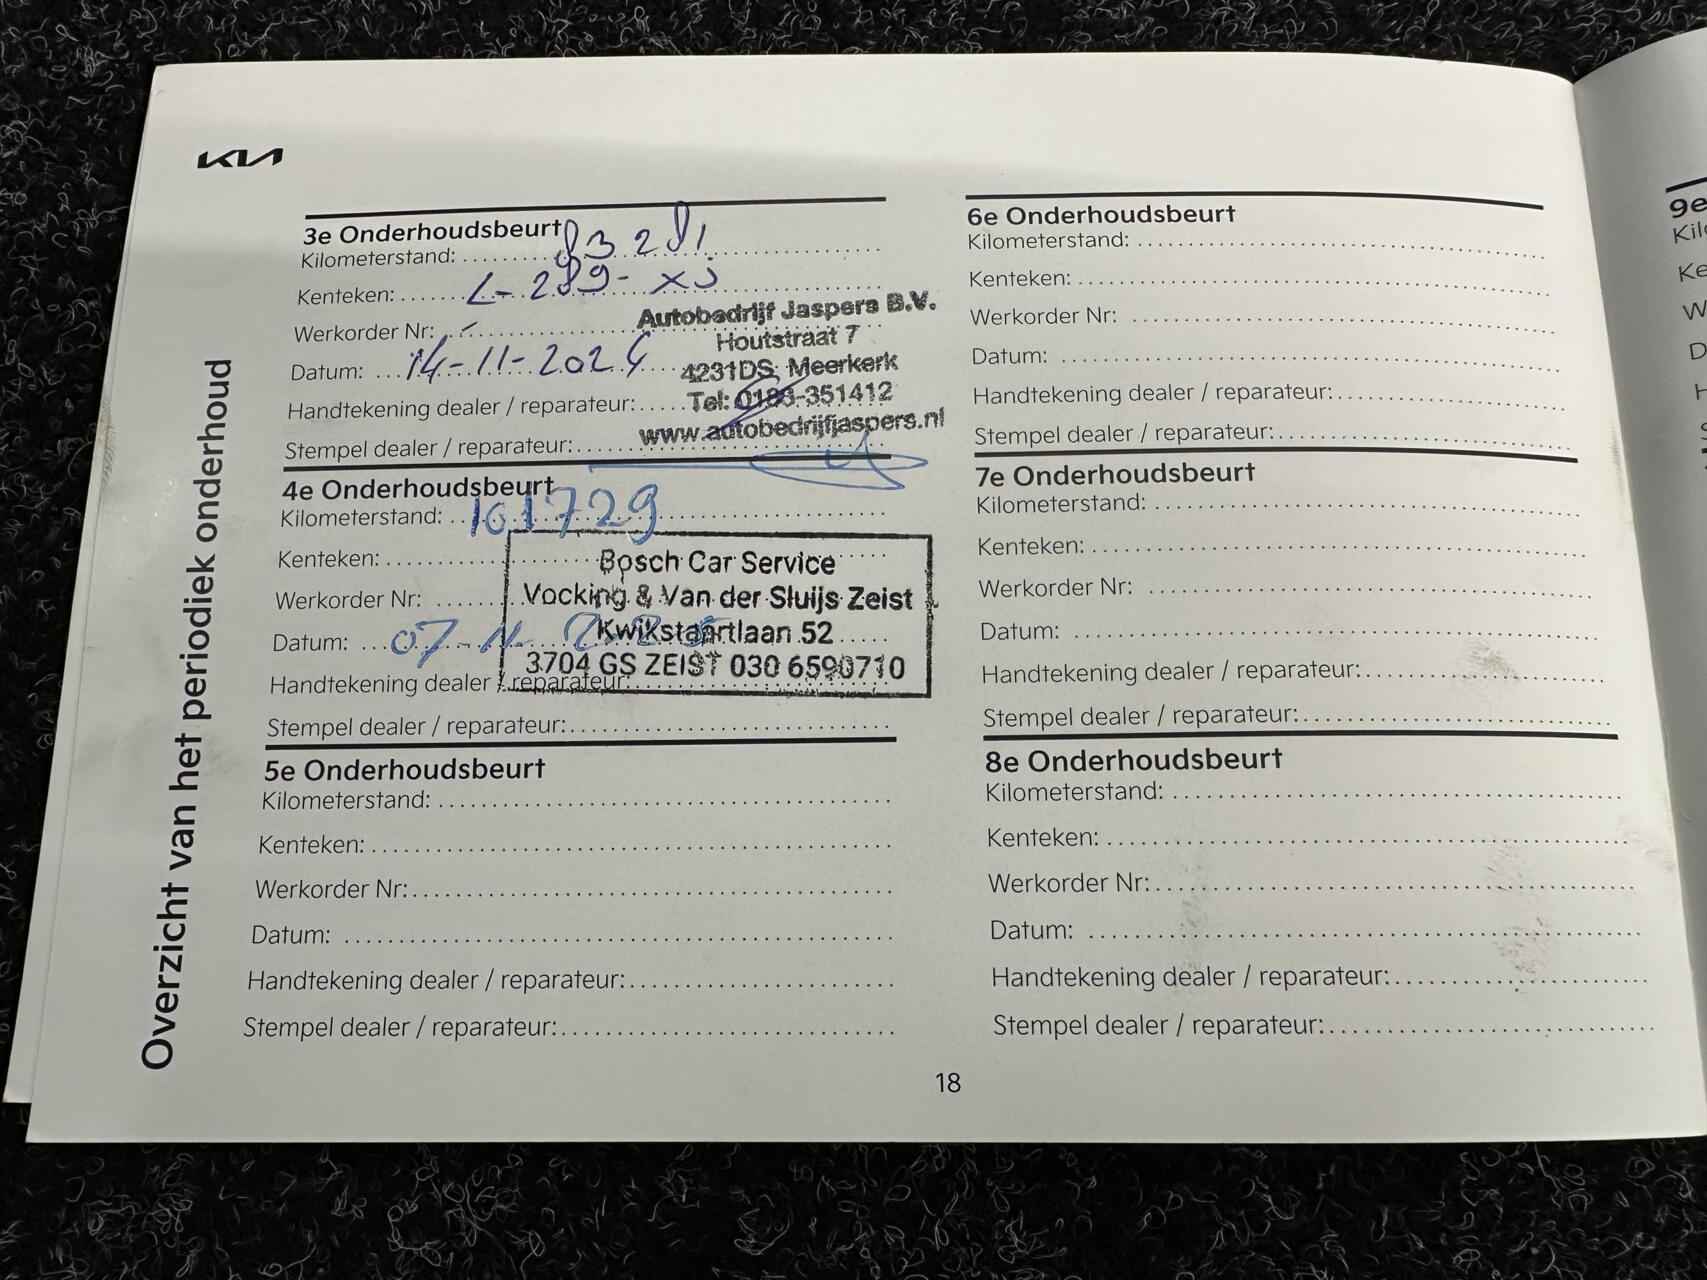 KIA
Overzicht van het periodiek onderhoud
3e Onderhoudsbeurt
Kilometerstand: 83281
Kenteken: L-289-XJ
Werkorder Nr: -
Datum: 14-11-2024
Handtekening dealer / reparateur:
Stempel dealer / reparateur:
Autobedrijf Jaspers B.V.
Houtstraat 7
4231DS Meerkerk
Tel: 0183-351412
www.autobedrijfjaspers.nl
4e Onderhoudsbeurt
Kilometerstand: 101729
Kenteken:
Werkorder Nr:
Datum: 07-11-2025
Handtekening dealer / reparateur:
Stempel dealer / reparateur:
Bosch Car Service
Vocking & Van der Sluijs Zeist
Kwikstaartlaan 52
3704 GS ZEIST 030 6590710
5e Onderhoudsbeurt
Kilometerstand:
Kenteken:
Werkorder Nr:
Datum:
Handtekening dealer / reparateur:
Stempel dealer / reparateur:
6e Onderhoudsbeurt
Kilometerstand:
Kenteken:
Werkorder Nr:
Datum:
Handtekening dealer / reparateur:
Stempel dealer / reparateur:
7e Onderhoudsbeurt
Kilometerstand:
Kenteken:
Werkorder Nr:
Datum:
Handtekening dealer / reparateur:
Stempel dealer / reparateur:
8e Onderhoudsbeurt
Kilometerstand:
Kenteken:
Werkorder Nr:
Datum:
Handtekening dealer / reparateur:
Stempel dealer / reparateur:
18
9e